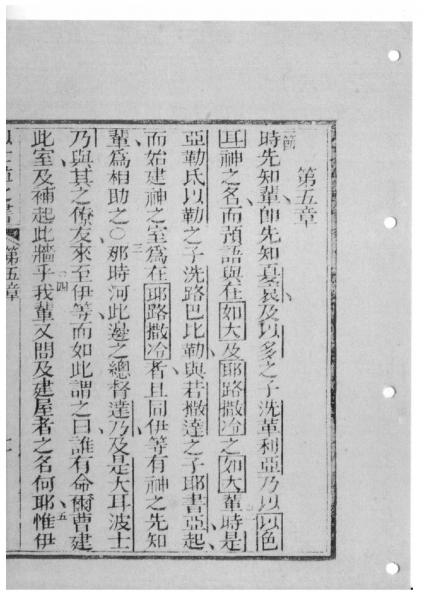 第五章
節時先知輩卽先知夏哀及以多之子洗革利亞乃以以色
耳神之名而預語與在如大及耶路撒冷之如大輩時是
亞勒氐以勒之子洗路巴比勒與若撒達之子耶書亞起
而始建神之室爲在耶路撒冷者且同伊等有神之先知
輩爲相助之○三那時河此邊之總督達乃及是大耳波士
乃與其之僚友來至伊等而如此謂之曰誰有命爾曹建
此室及補起此牆乎四我輩又問及建屋者之名何耶五惟伊
之書 第五章